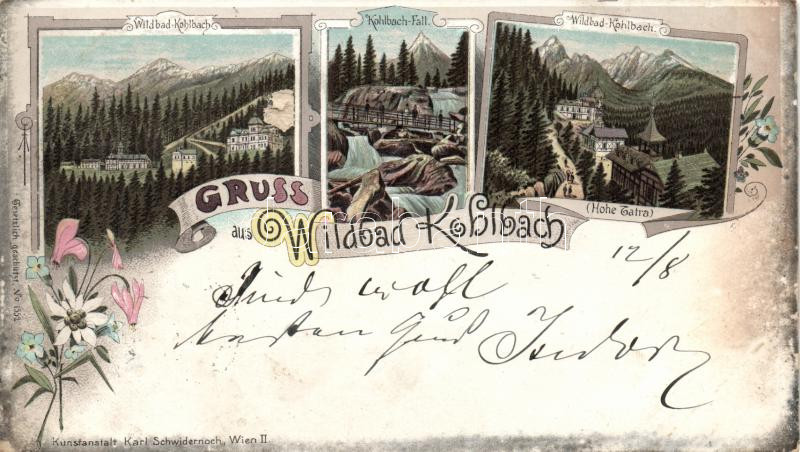 Wildbad-Kohlbach
Kohlbach-Fall.
Wildbad-Kohlbach.
GRUSS
aus Wildbad Kohlbach
(Hohe Tatra)
12/8
wohl
besten Gruß
Gesetzlich geschützt. No
Kunstanstalt Karl Schwidernoch, Wien II.